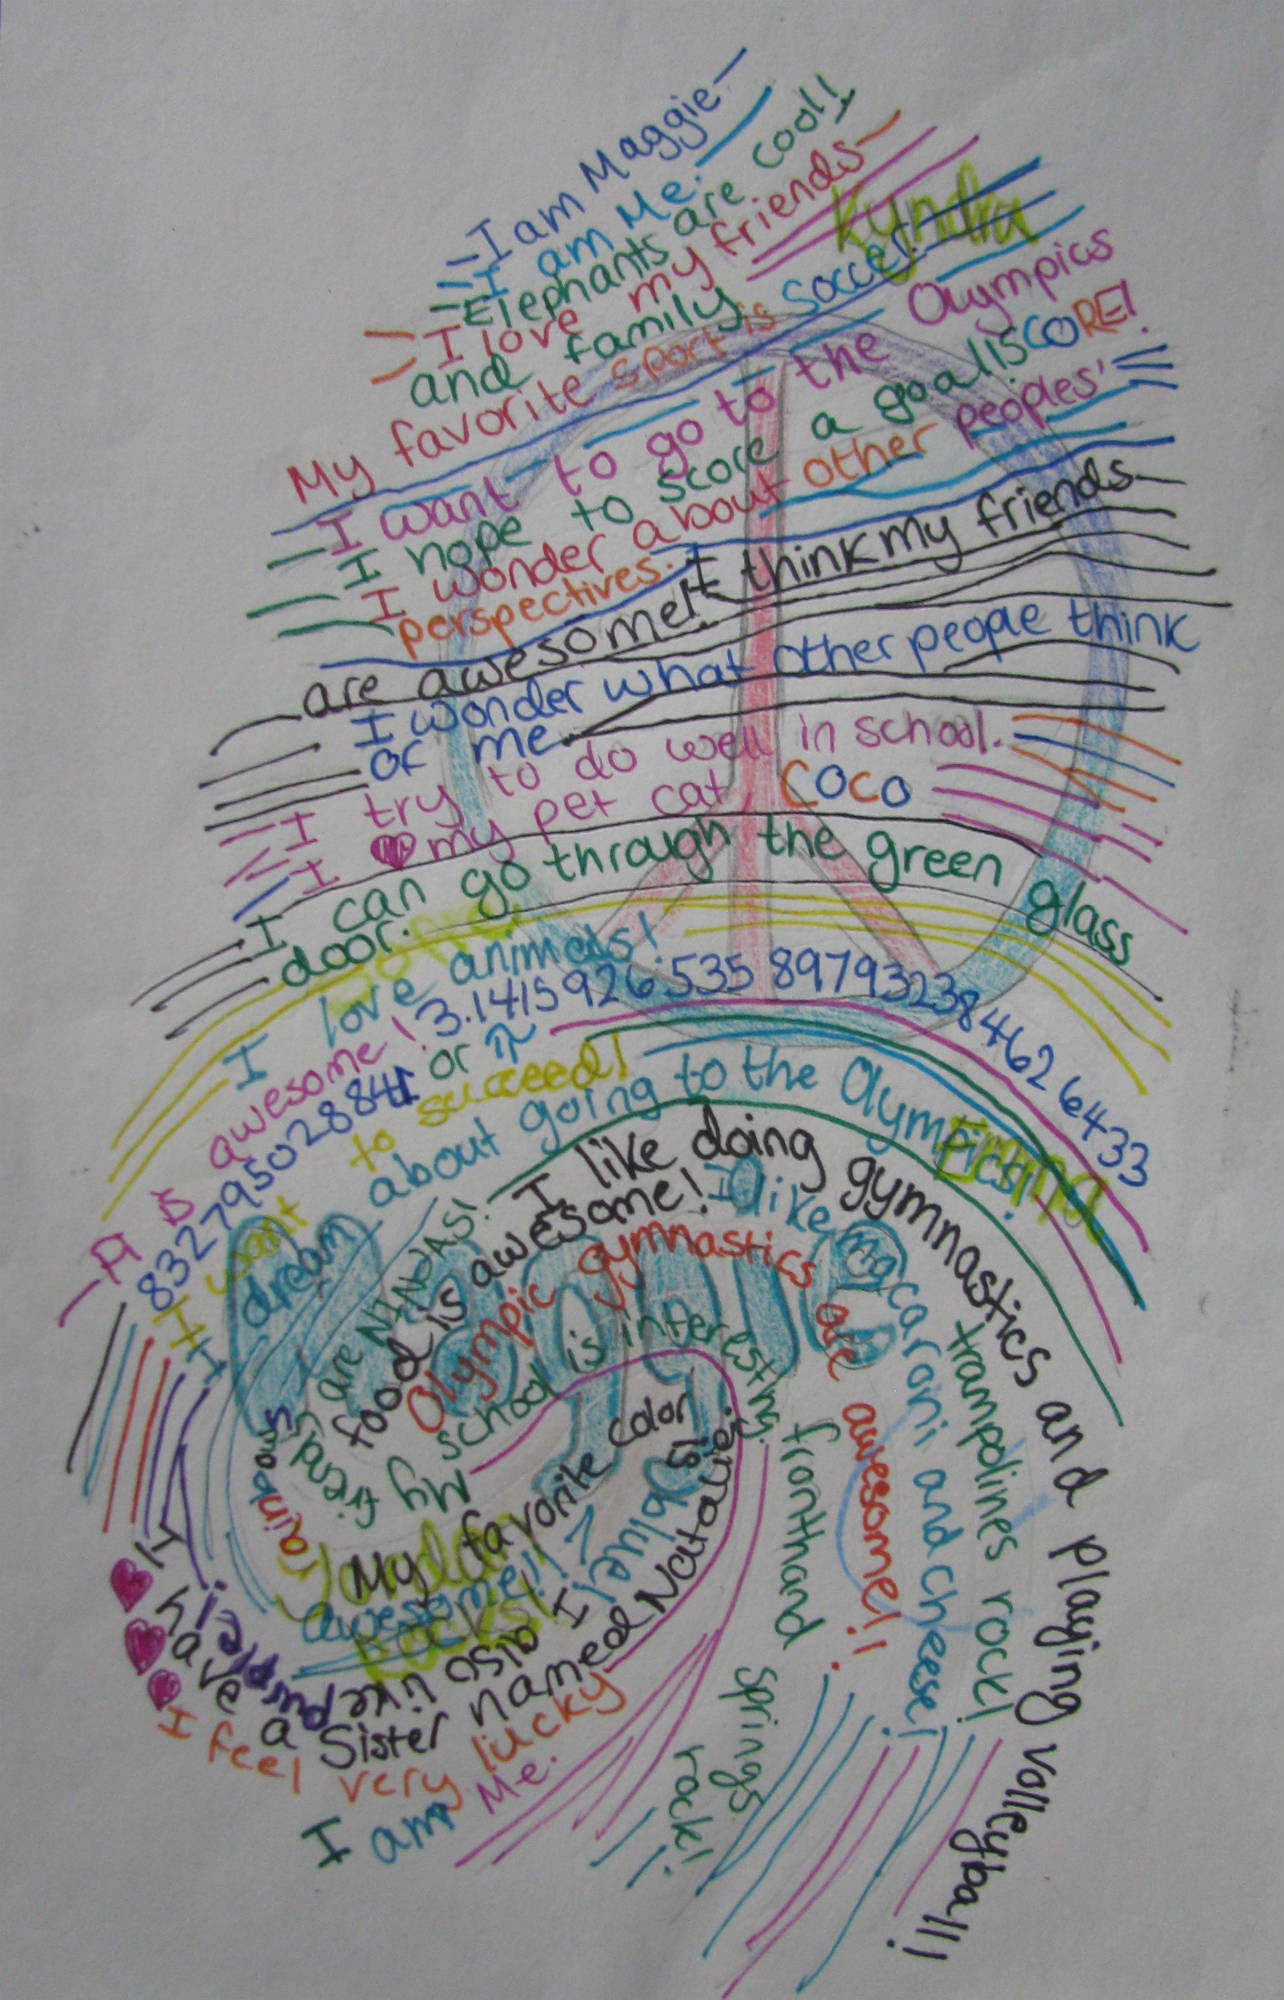 -I am Maggie-
-I am Me.
-Elephants are cool!
-I love my friends-
and family
Kyndra
My favorite sport is soccer!
I want to go to the Olympics
I hope to score a goal! SCORE!
I wonder about other peoples'
perspectives.
I think my friends
are awesome!!
I wonder what other people think
of me.
I try to do well in school.
I ♥ my pet cat, COCO
I can go through the green glass
door.
I love animals!
-A is awesome! 3.1415926535 8979323846264 33
83279502884I or π
I want to succeed!
I dream about going to the Olympics!
Maggie
friends are NINJAS!
food is awesome!
I like doing gymnastics and playing volleyball!
I like macaroni and cheese!
Olympic gymnastics are awesome!!
trampolines rock!
My school is interesting.
fronthand springs rock!
My favorite color is blue!
I also like purple!
rainbows
awesome!!
Rocks!
I have a Sister named Natalie.
♥♥♥
I feel very lucky
I am Me.